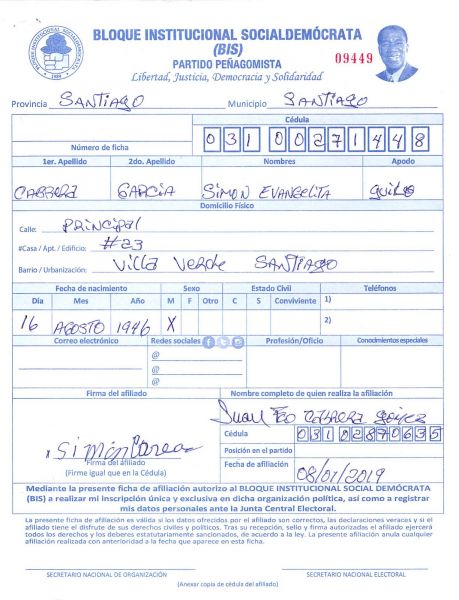 BLOQUE INSTITUCIONAL SOCIALDEMÓCRATA
(BIS)
PARTIDO PEÑAGOMISTA
09449
Libertad, Justicia, Democracia y Solidaridad
Provincia SANTIAGO Municipio SANTIAGO
Cédula
Número de ficha 031 0027144 8
1er. Apellido 2do. Apellido Nombres Apodo
CABRERA GARCIA SIMON EVANGELITA
Domicilio Físico
Calle: PRINCIPAL
#Casa / Apt. / Edificio: #23
Barrio / Urbanización: Villa Verde SANTIAGO
Fecha de nacimiento Sexo Estado Civil Teléfonos
Día Mes Año M F Otro C S Conviviente 1)
16 AGOSTO 1946 X 2)
Correo electrónico Redes sociales Profesión/Oficio Conocimientos especiales
@
@
@
Firma del afiliado Nombre completo de quien realiza la afiliación
Juan Fco Cabrera
Cédula 031 0289063 5
Simón
Posición en el partido
Firma del afiliado
(Firme igual que en la Cédula)
Fecha de afiliación 08/01/2019
Mediante la presente ficha de afiliación autorizo al BLOQUE INSTITUCIONAL SOCIAL DEMÓCRATA
(BIS) a realizar mi inscripción única y exclusiva en dicha organización política, así como a registrar
mis datos personales ante la Junta Central Electoral.
La presente ficha de afiliación es válida si los datos ofrecidos por el afiliado son correctos, las declaraciones veraces y si el
afiliado tiene el disfrute de sus derechos civiles y políticos. Tras su recepción, sello y firma autorizadas el afiliado ejercerá
todos los derechos y los deberes estatutariamente sancionados, de acuerdo a la ley. La presente afiliación anula cualquier
afiliación realizada con anterioridad a la fecha que aparece en esta ficha.
SECRETARIO NACIONAL DE ORGANIZACIÓN SECRETARIO NACIONAL ELECTORAL
(Anexar copia de cédula del afiliado)